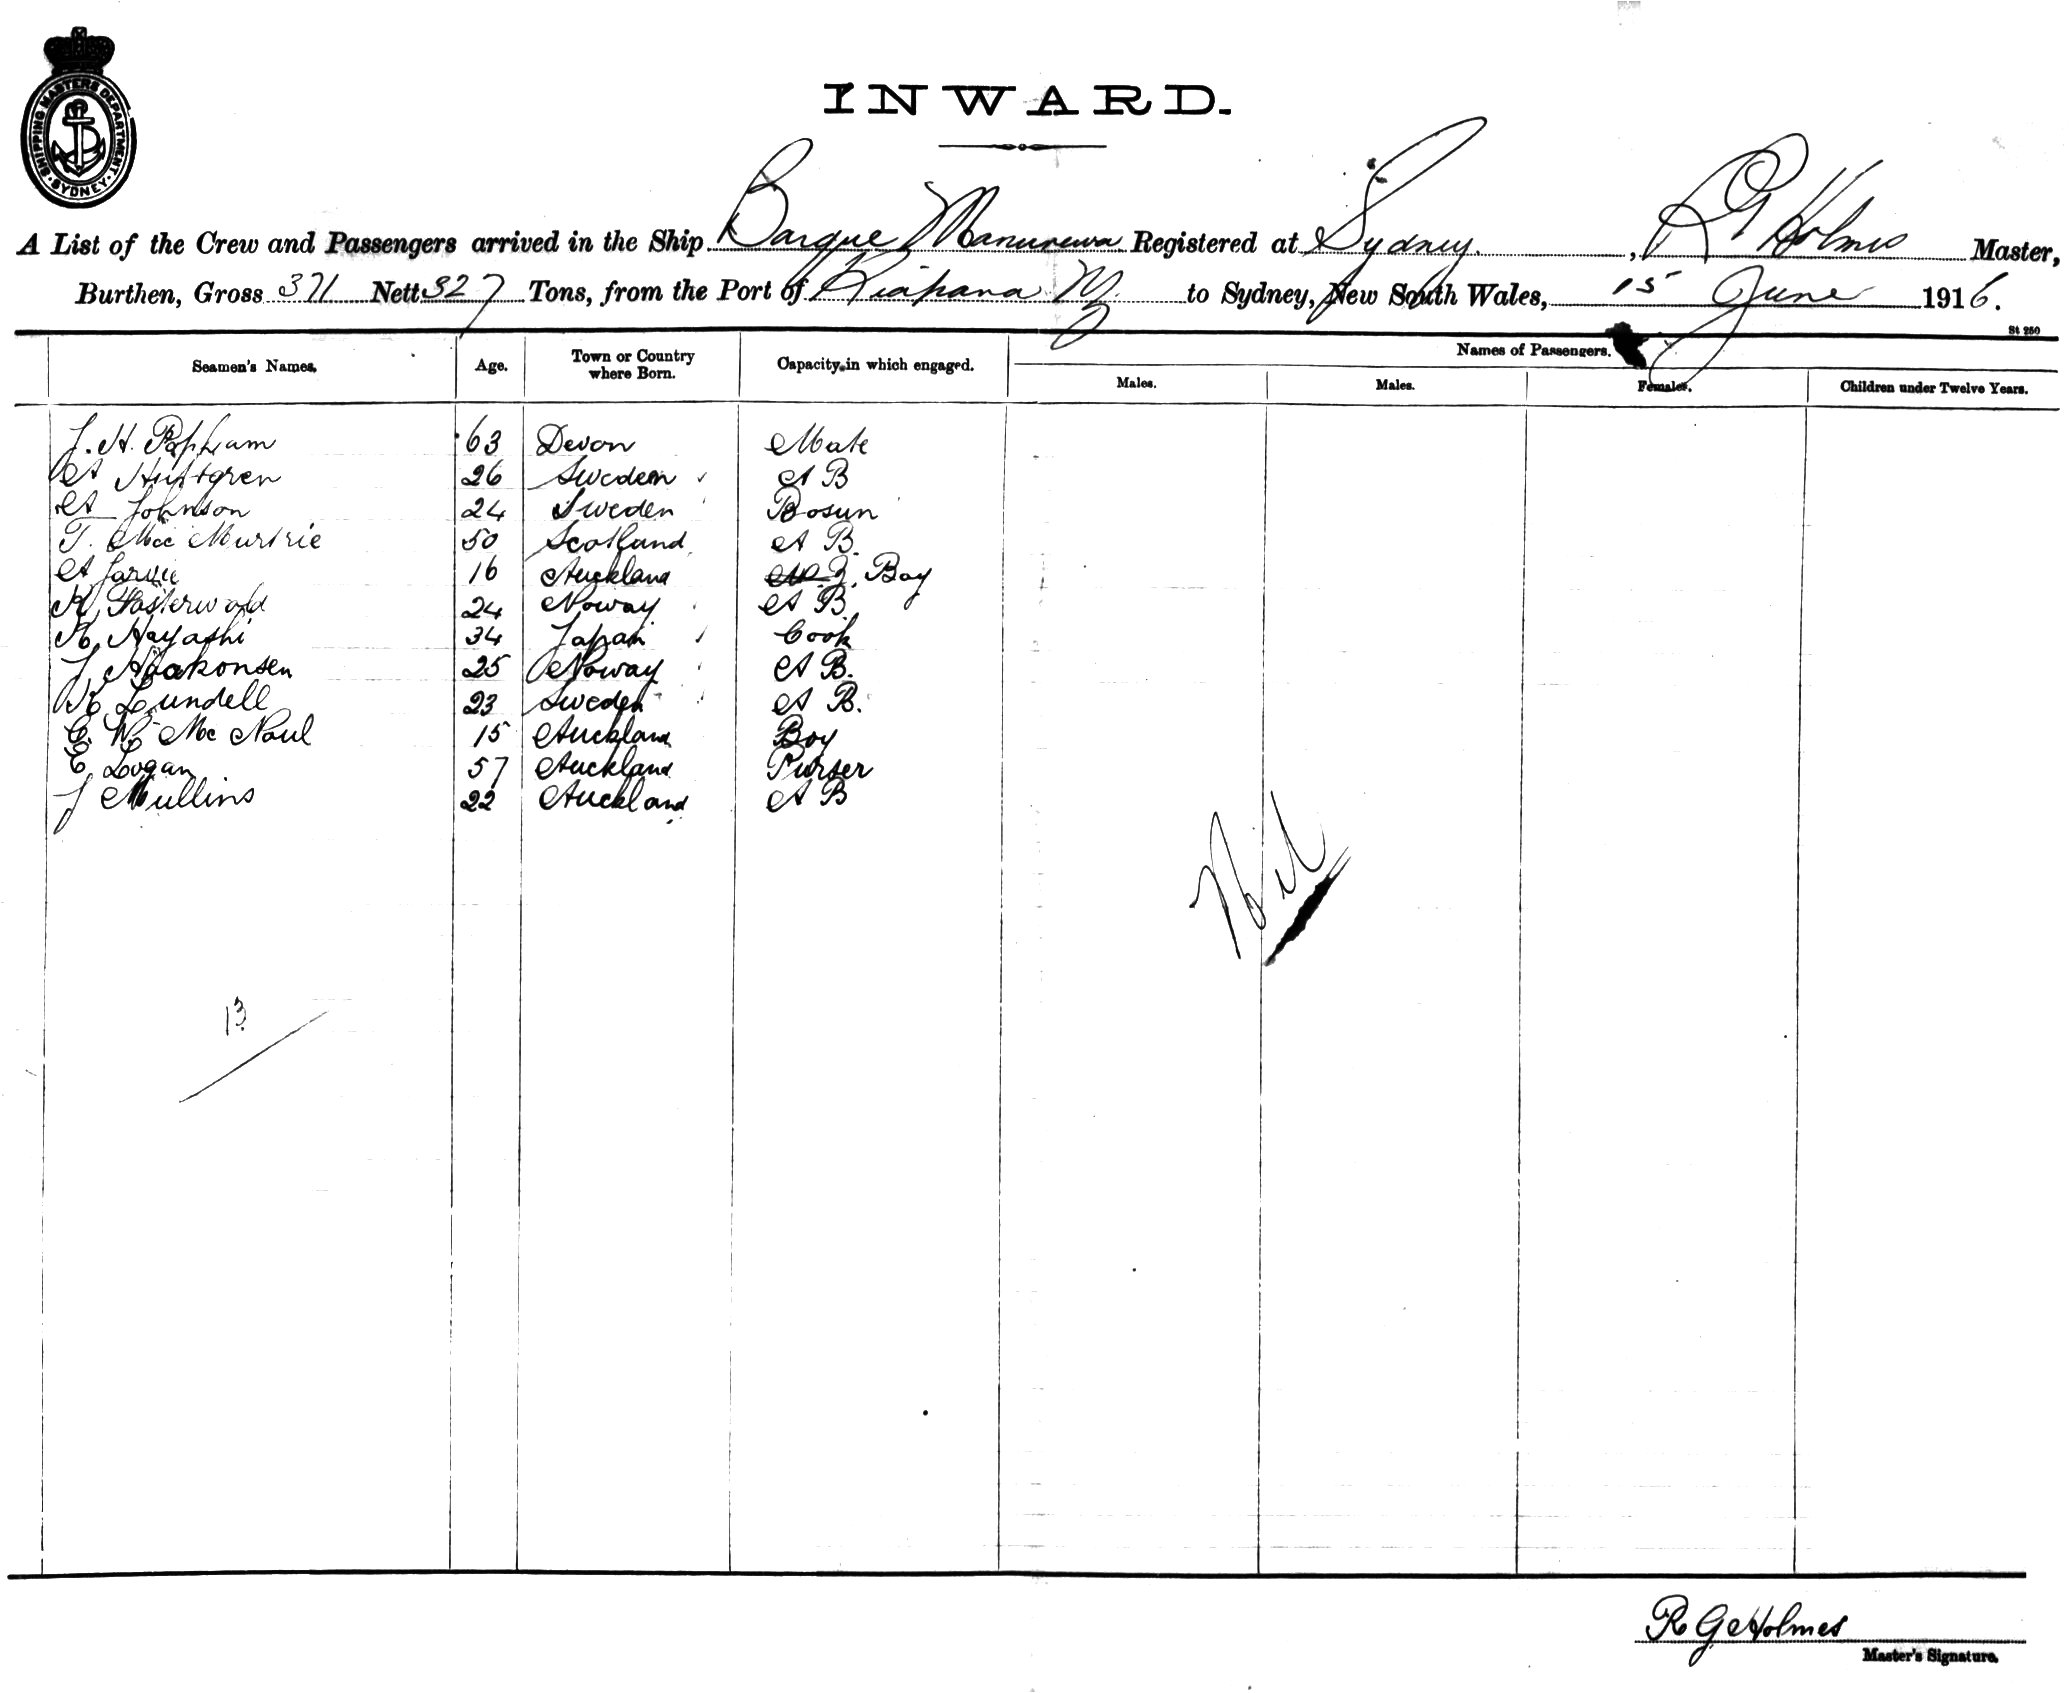 SHIPPING MASTERS DEPARTMENT. SYDNEY.
INWARD.
A List of the Crew and Passengers arrived in the Ship Barque Manurewa Registered at Sydney, R G Holmes Master,
Burthen, Gross 371 Nett 327 Tons, from the Port of NZ to Sydney, New South Wales, 15 June 1916.
St 250
Seamen's Names. Age. Town or Country where Born. Capacity in which engaged. Names of Passengers.
Males. Males. Females. Children under Twelve Years.
J. H. Popham 63 Devon Mate
A Hultgren 26 Sweden A B
A Johnson 24 Sweden Bosun
T. Mac Murtrie 50 Scotland A B.
A Jarvie 16 Auckland Boy
K Fosterwold 24 Noway A B
K Hayashi 34 Japan Cook
J Haakonsen 25 Noway A B.
K Lundell 23 Sweden A B.
G. W. Mc Naul 15 Auckland Boy
E Logan 57 Auckland Purser
J Mullins 22 Auckland A B
Nil
13
R G Holmes
Master's Signature.